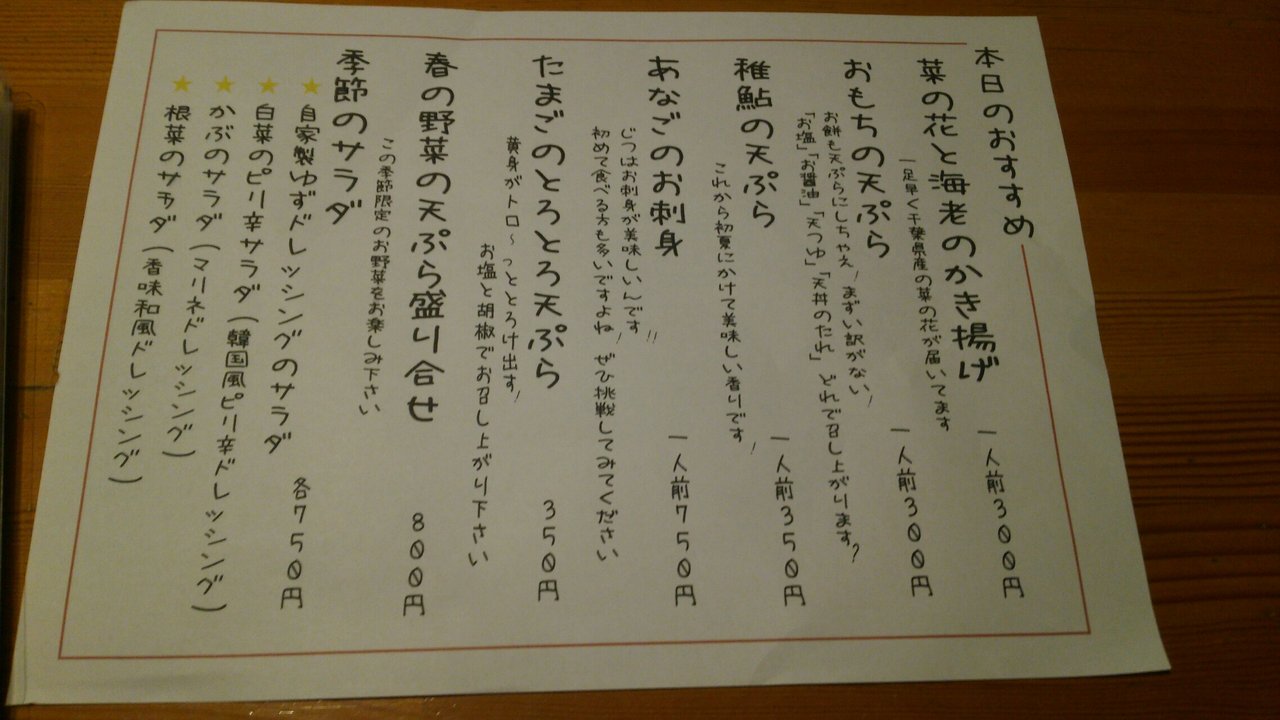 本日のおすすめ
菜の花と海老のかき揚げ 一人前300円
一足早く千葉県産の菜の花が届いてます
おもちの天ぷら 一人前300円
お餅も天ぷらにしちゃえ!まずい訳がない!
「お塩」「お醤油」「天つゆ」「天丼のたれ」どれで召し上がります?
稚鮎の天ぷら 一人前350円
これから初夏にかけて美味しい香りです!
あなごのお刺身 一人前750円
じつはお刺身が美味しいんです!!
初めて食べる方も多いですよね!ぜひ挑戦してみてください
たまごのとろとろ天ぷら 350円
黄身がトロ~っととろけ出す!
お塩と胡椒でお召し上がり下さい
春の野菜の天ぷら盛り合せ 800円
この季節限定のお野菜をお楽しみ下さい
季節のサラダ
★自家製ゆずドレッシングのサラダ 各750円
★白菜のピリ辛サラダ(韓国風ピリ辛ドレッシング)
★かぶのサラダ(マリネドレッシング)
★根菜のサラダ(香味和風ドレッシング)